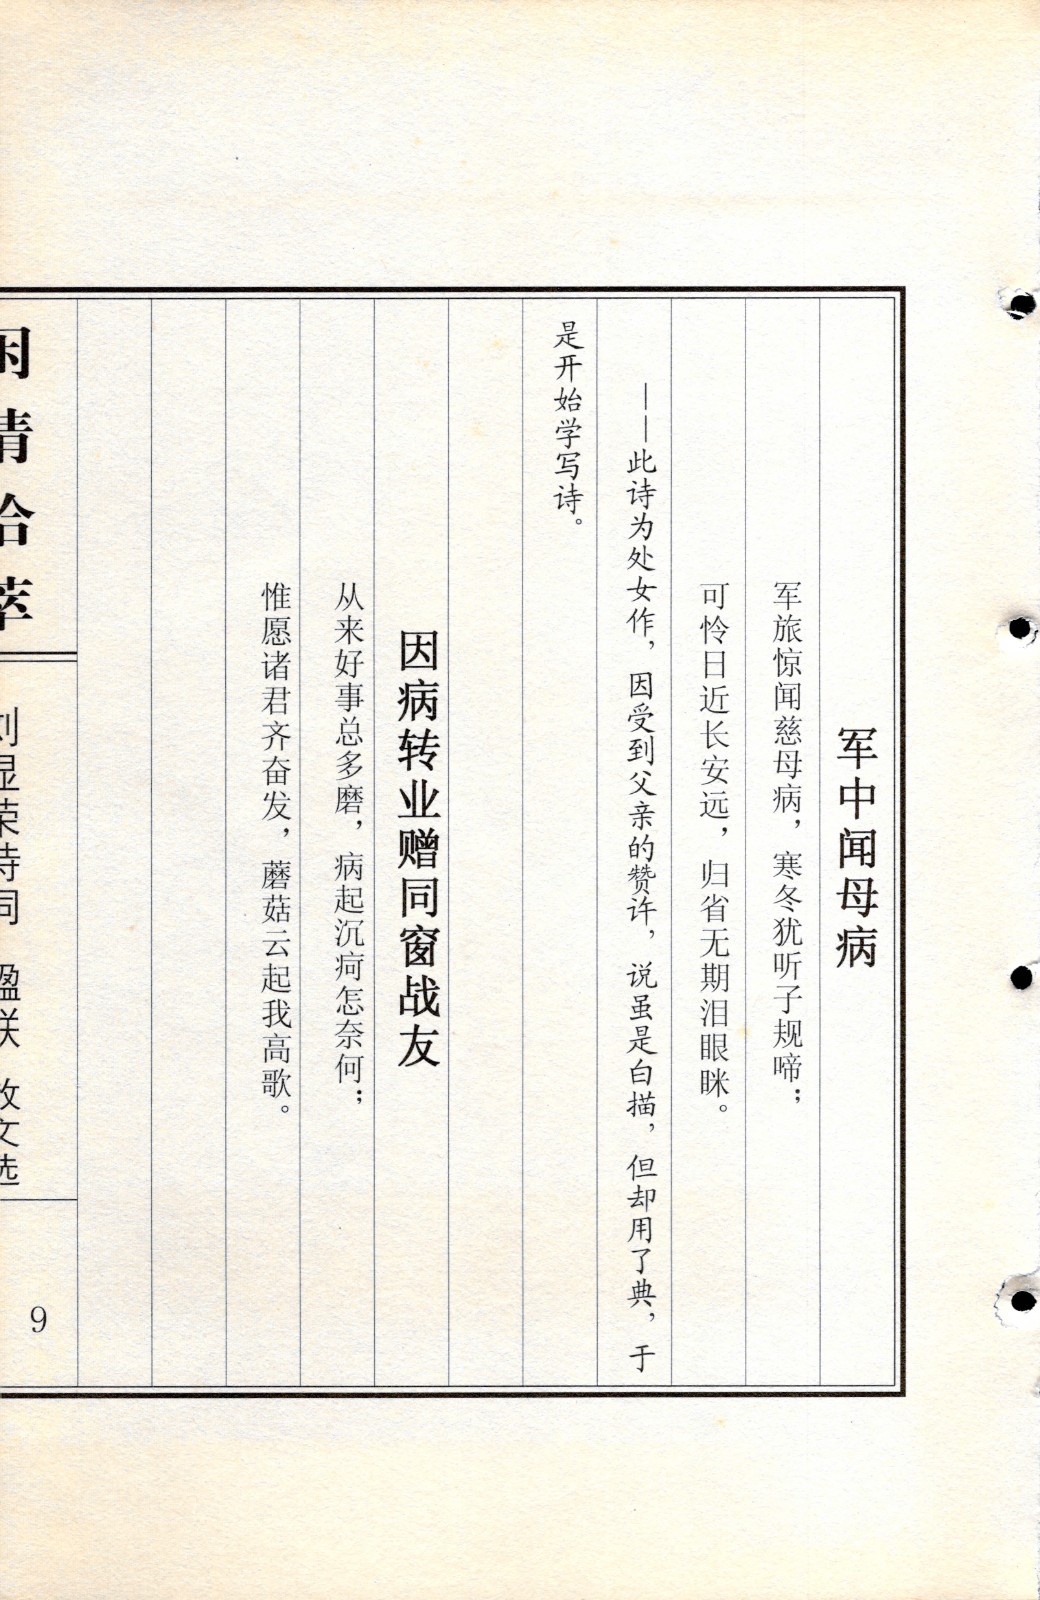 军中闻母病
军旅惊闻慈母病，寒冬犹听子规啼；
可怜日近长安远，归省无期泪眼眯。
——此诗为处女作，因受到父亲的赞许，说虽是白描，但却用了典，于
是开始学写诗。
因病转业赠同窗战友
从来好事总多磨，病起沉疴怎奈何；
惟愿诸君齐奋发，蘑菇云起我高歌。
情拾萃
刘显荣诗词 楹联 散文选
9